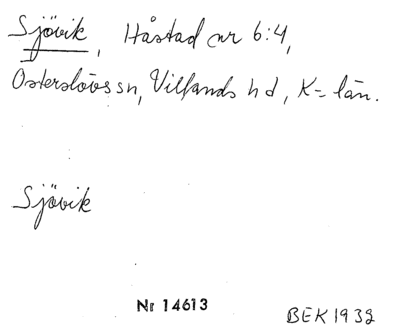 Sjövik, Håstad nr 6:4,
Österslövs sn, Villands hd, K-län.
Sjövik
Nr 14613
BEK 1932